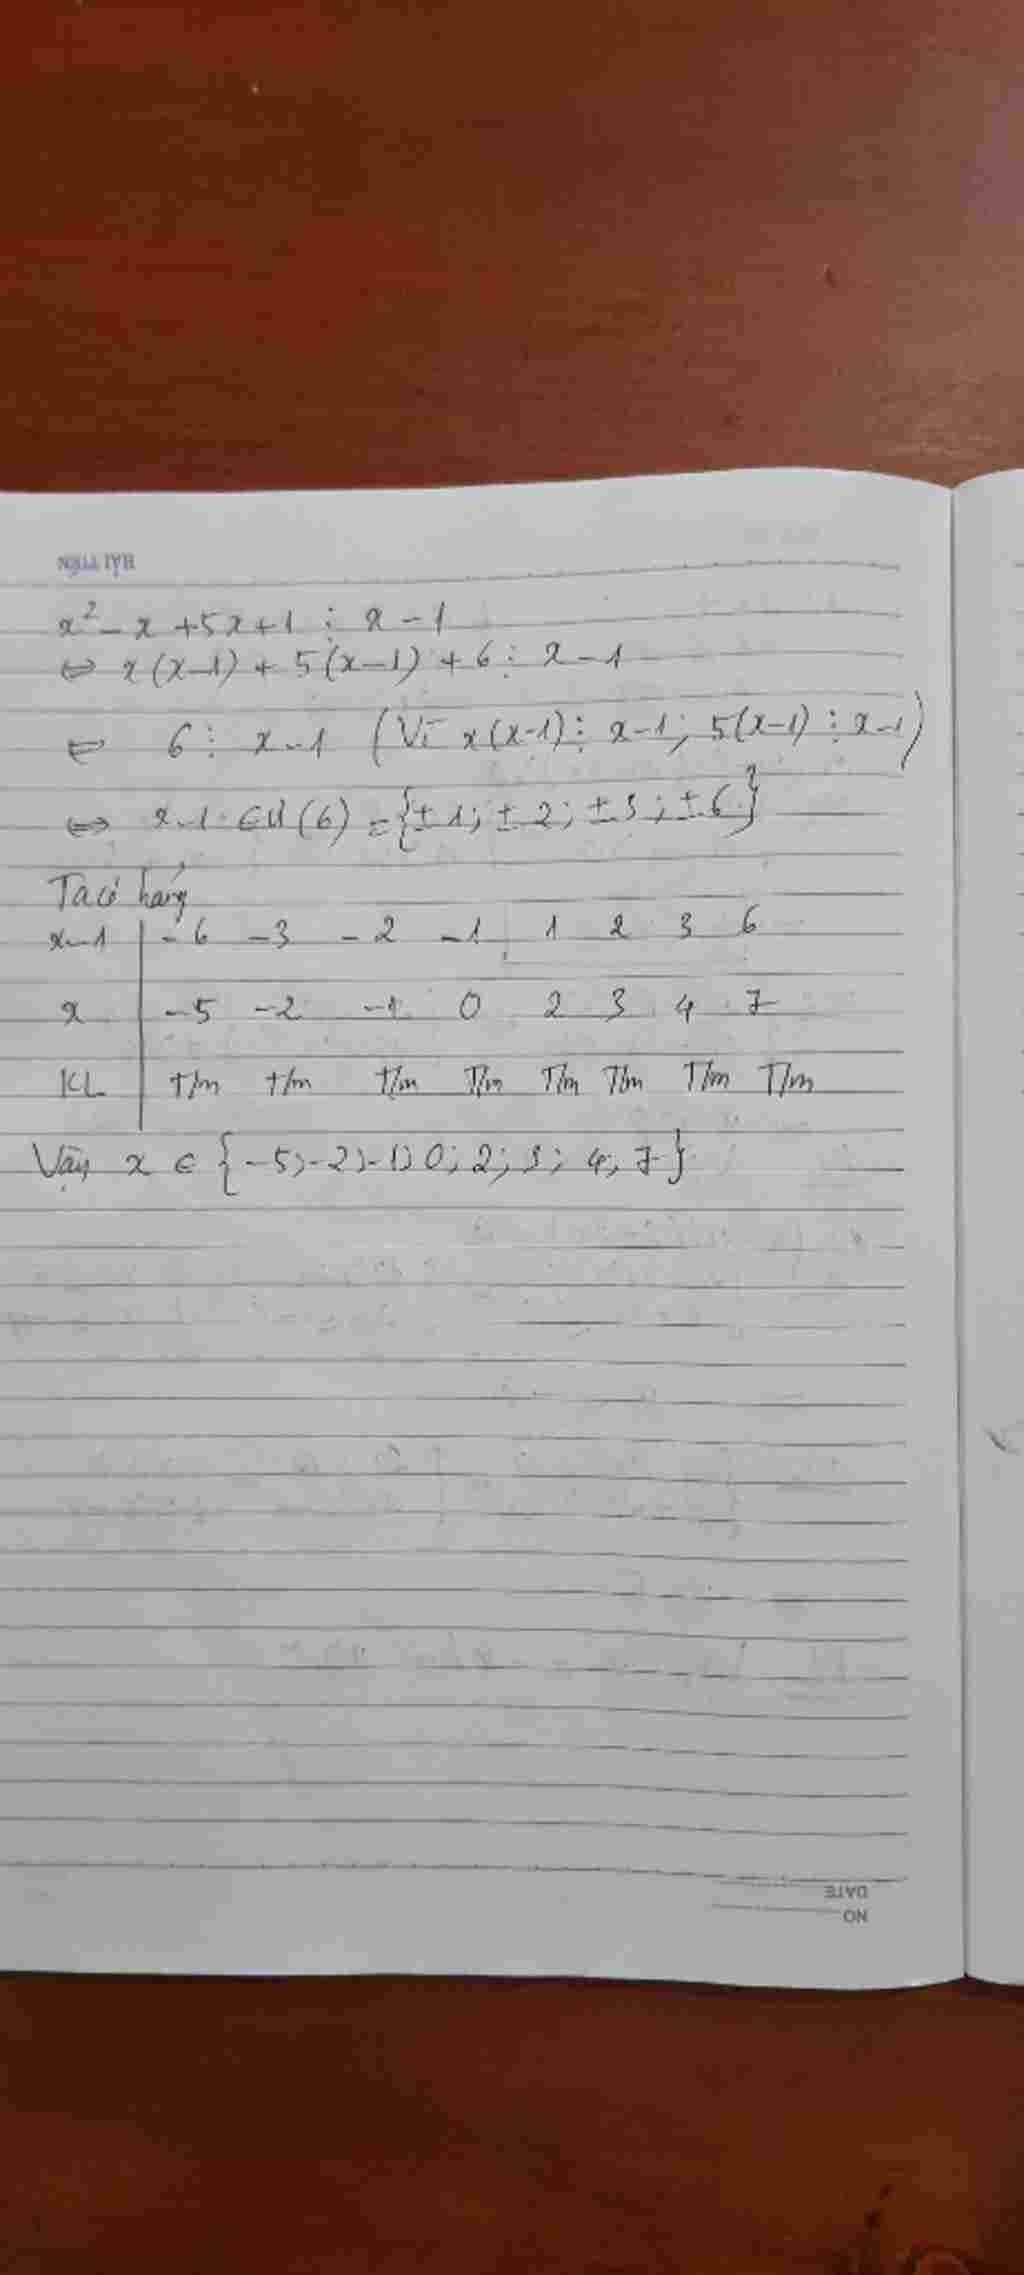 HẢI TIẾN
x² - x + 5x + 1 ⋮ x - 1
⇔ x(x-1) + 5(x-1) + 6 ⋮ x - 1
⇔ 6 ⋮ x - 1 (Vì x(x-1) ⋮ x-1; 5(x-1) ⋮ x-1)
⇔ x-1 ∈ Ư(6) = {±1; ±2; ±3; ±6}
Ta có bảng
x-1 | -6 -3 -2 -1 1 2 3 6
x | -5 -2 -1 0 2 3 4 7
KL | t/m t/m t/m T/m T/m T/m T/m T/m
Vậy x ∈ {-5; -2; -1; 0; 2; 3; 4; 7}
DATE
NO